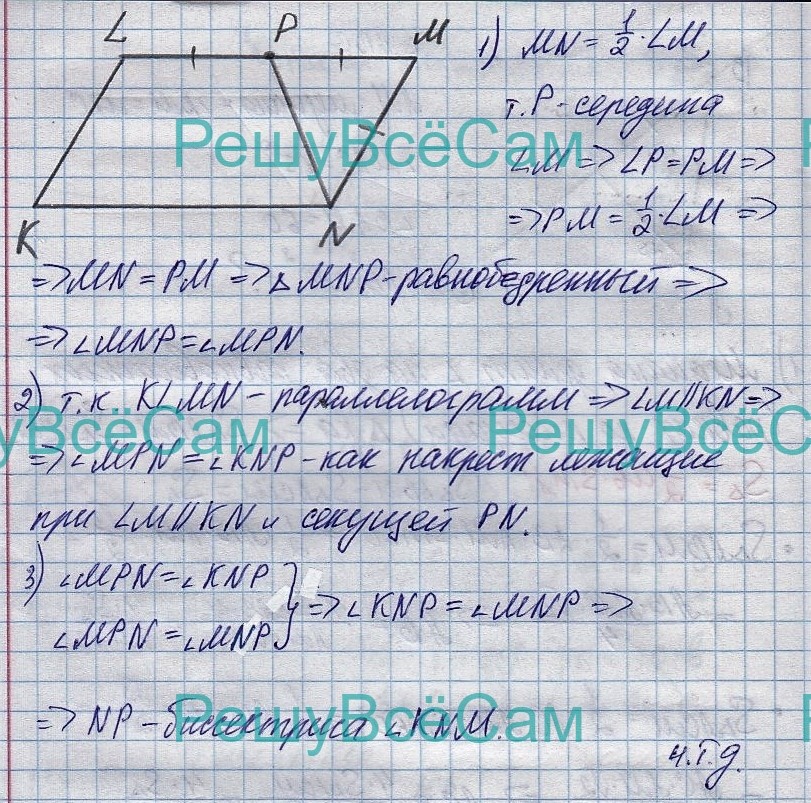 L P M
K N
1) MN = 1/2 · LM,
т. P - середина
LM => LP = PM =>
=> PM = 1/2 · LM =>
=> MN = PM => △MNP - равнобедренный =>
=> ∠MNP = ∠MPN.
2) т.к KLMN - параллелограмм => LM || KN =>
=> ∠MPN = ∠KNP - как накрест лежащие
при LM || KN и секущей PN.
3) ∠MPN = ∠KNP
∠MPN = ∠MNP } => ∠KNP = ∠MNP =>
=> NP - биссектриса ∠KNM.
ч.т.д.
РешуВсёСам
РешуВсёС
уВсёСам
РешуВсёС
РешуВсёСам